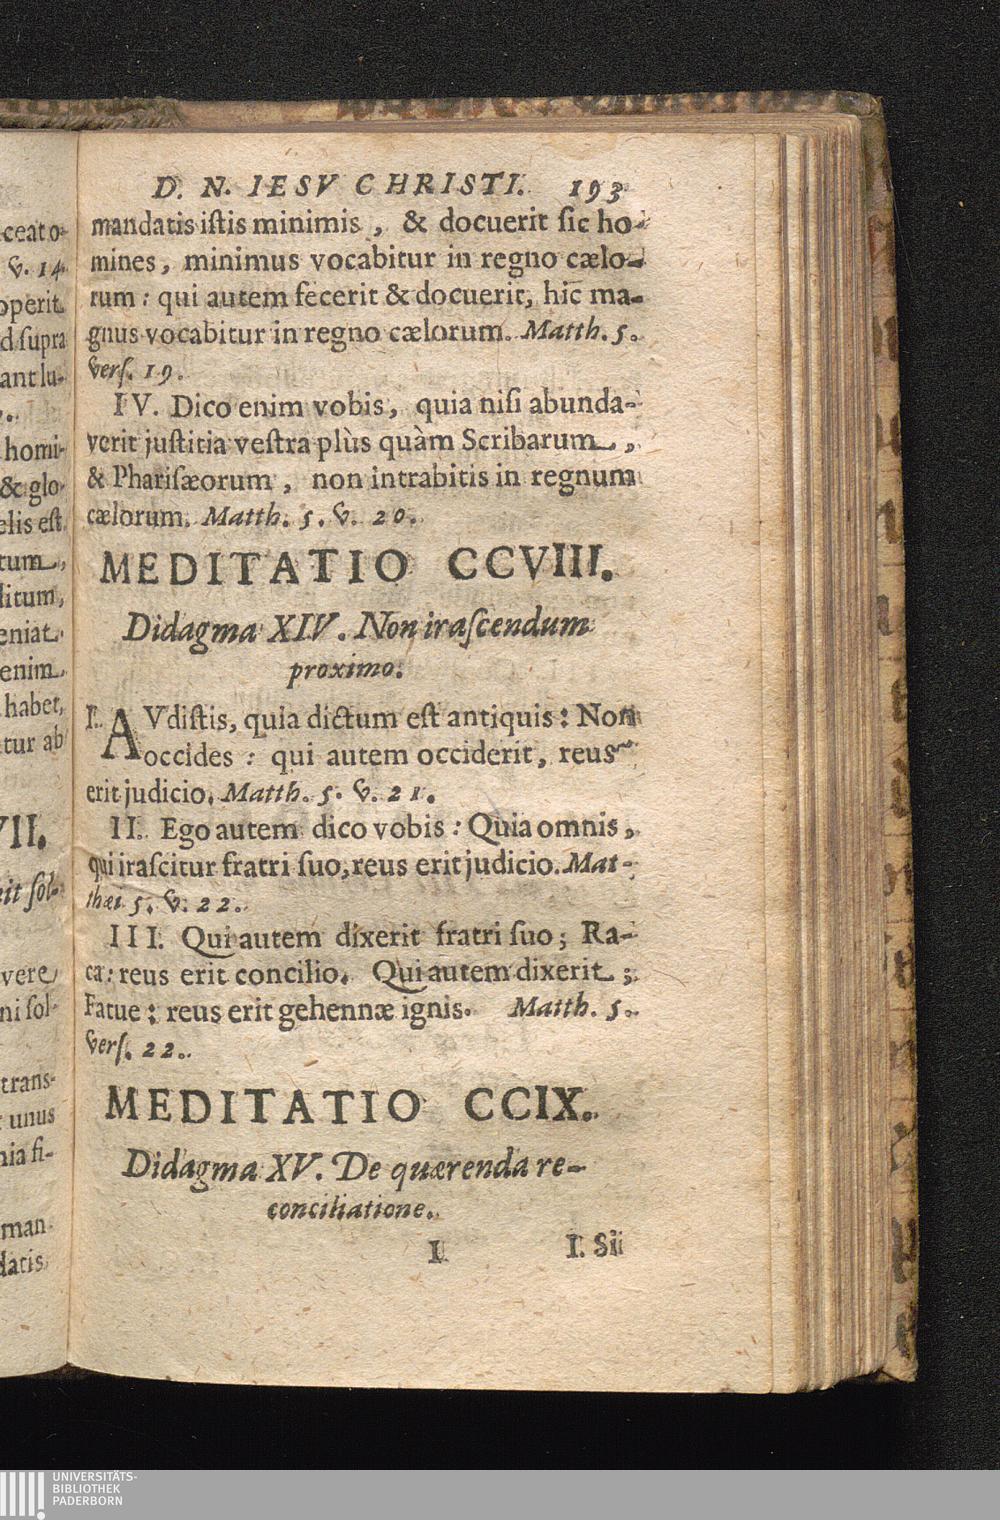 D. N. IESV CHRISTI. 193
mandatis istis minimis, & docuerit sic ho-
mines, minimus vocabitur in regno cælo-
rum: qui autem fecerit & docuerit, hic ma-
gnus vocabitur in regno cælorum. Matth. 5.
vers. 19.
IV. Dico enim vobis, quia nisi abunda-
verit justitia vestra plùs quàm Scribarum,
& Pharisæorum, non intrabitis in regnum
cælorum. Matth. 5. v. 20.
MEDITATIO CCVIII.
Didagma XIV. Non irascendum
proximo.
I. AVdistis, quia dictum est antiquis: Non
occides: qui autem occiderit, reus
erit judicio. Matth. 5. v. 21.
II. Ego autem dico vobis: Quia omnis,
qui irascitur fratri suo, reus erit judicio. Mat-
thæi 5. v. 22.
III. Qui autem dixerit fratri suo; Ra-
ca: reus erit concilio. Qui autem dixerit;
Fatue: reus erit gehennæ ignis. Matth. 5.
vers. 22.
MEDITATIO CCIX.
Didagma XV. De quærenda re-
conciliatione.
I I. Sii
ceat o-
v. 14
operit
d supra
ant lu-
homi-
& glo-
elis est
tum,
ditum,
eniat.
enim
habet,
tur ab
VII.
it sol-
vere
ni sol-
trans-
unus
nia fi-
man-
datis
UNIVERSITÄTS-
BIBLIOTHEK
PADERBORN